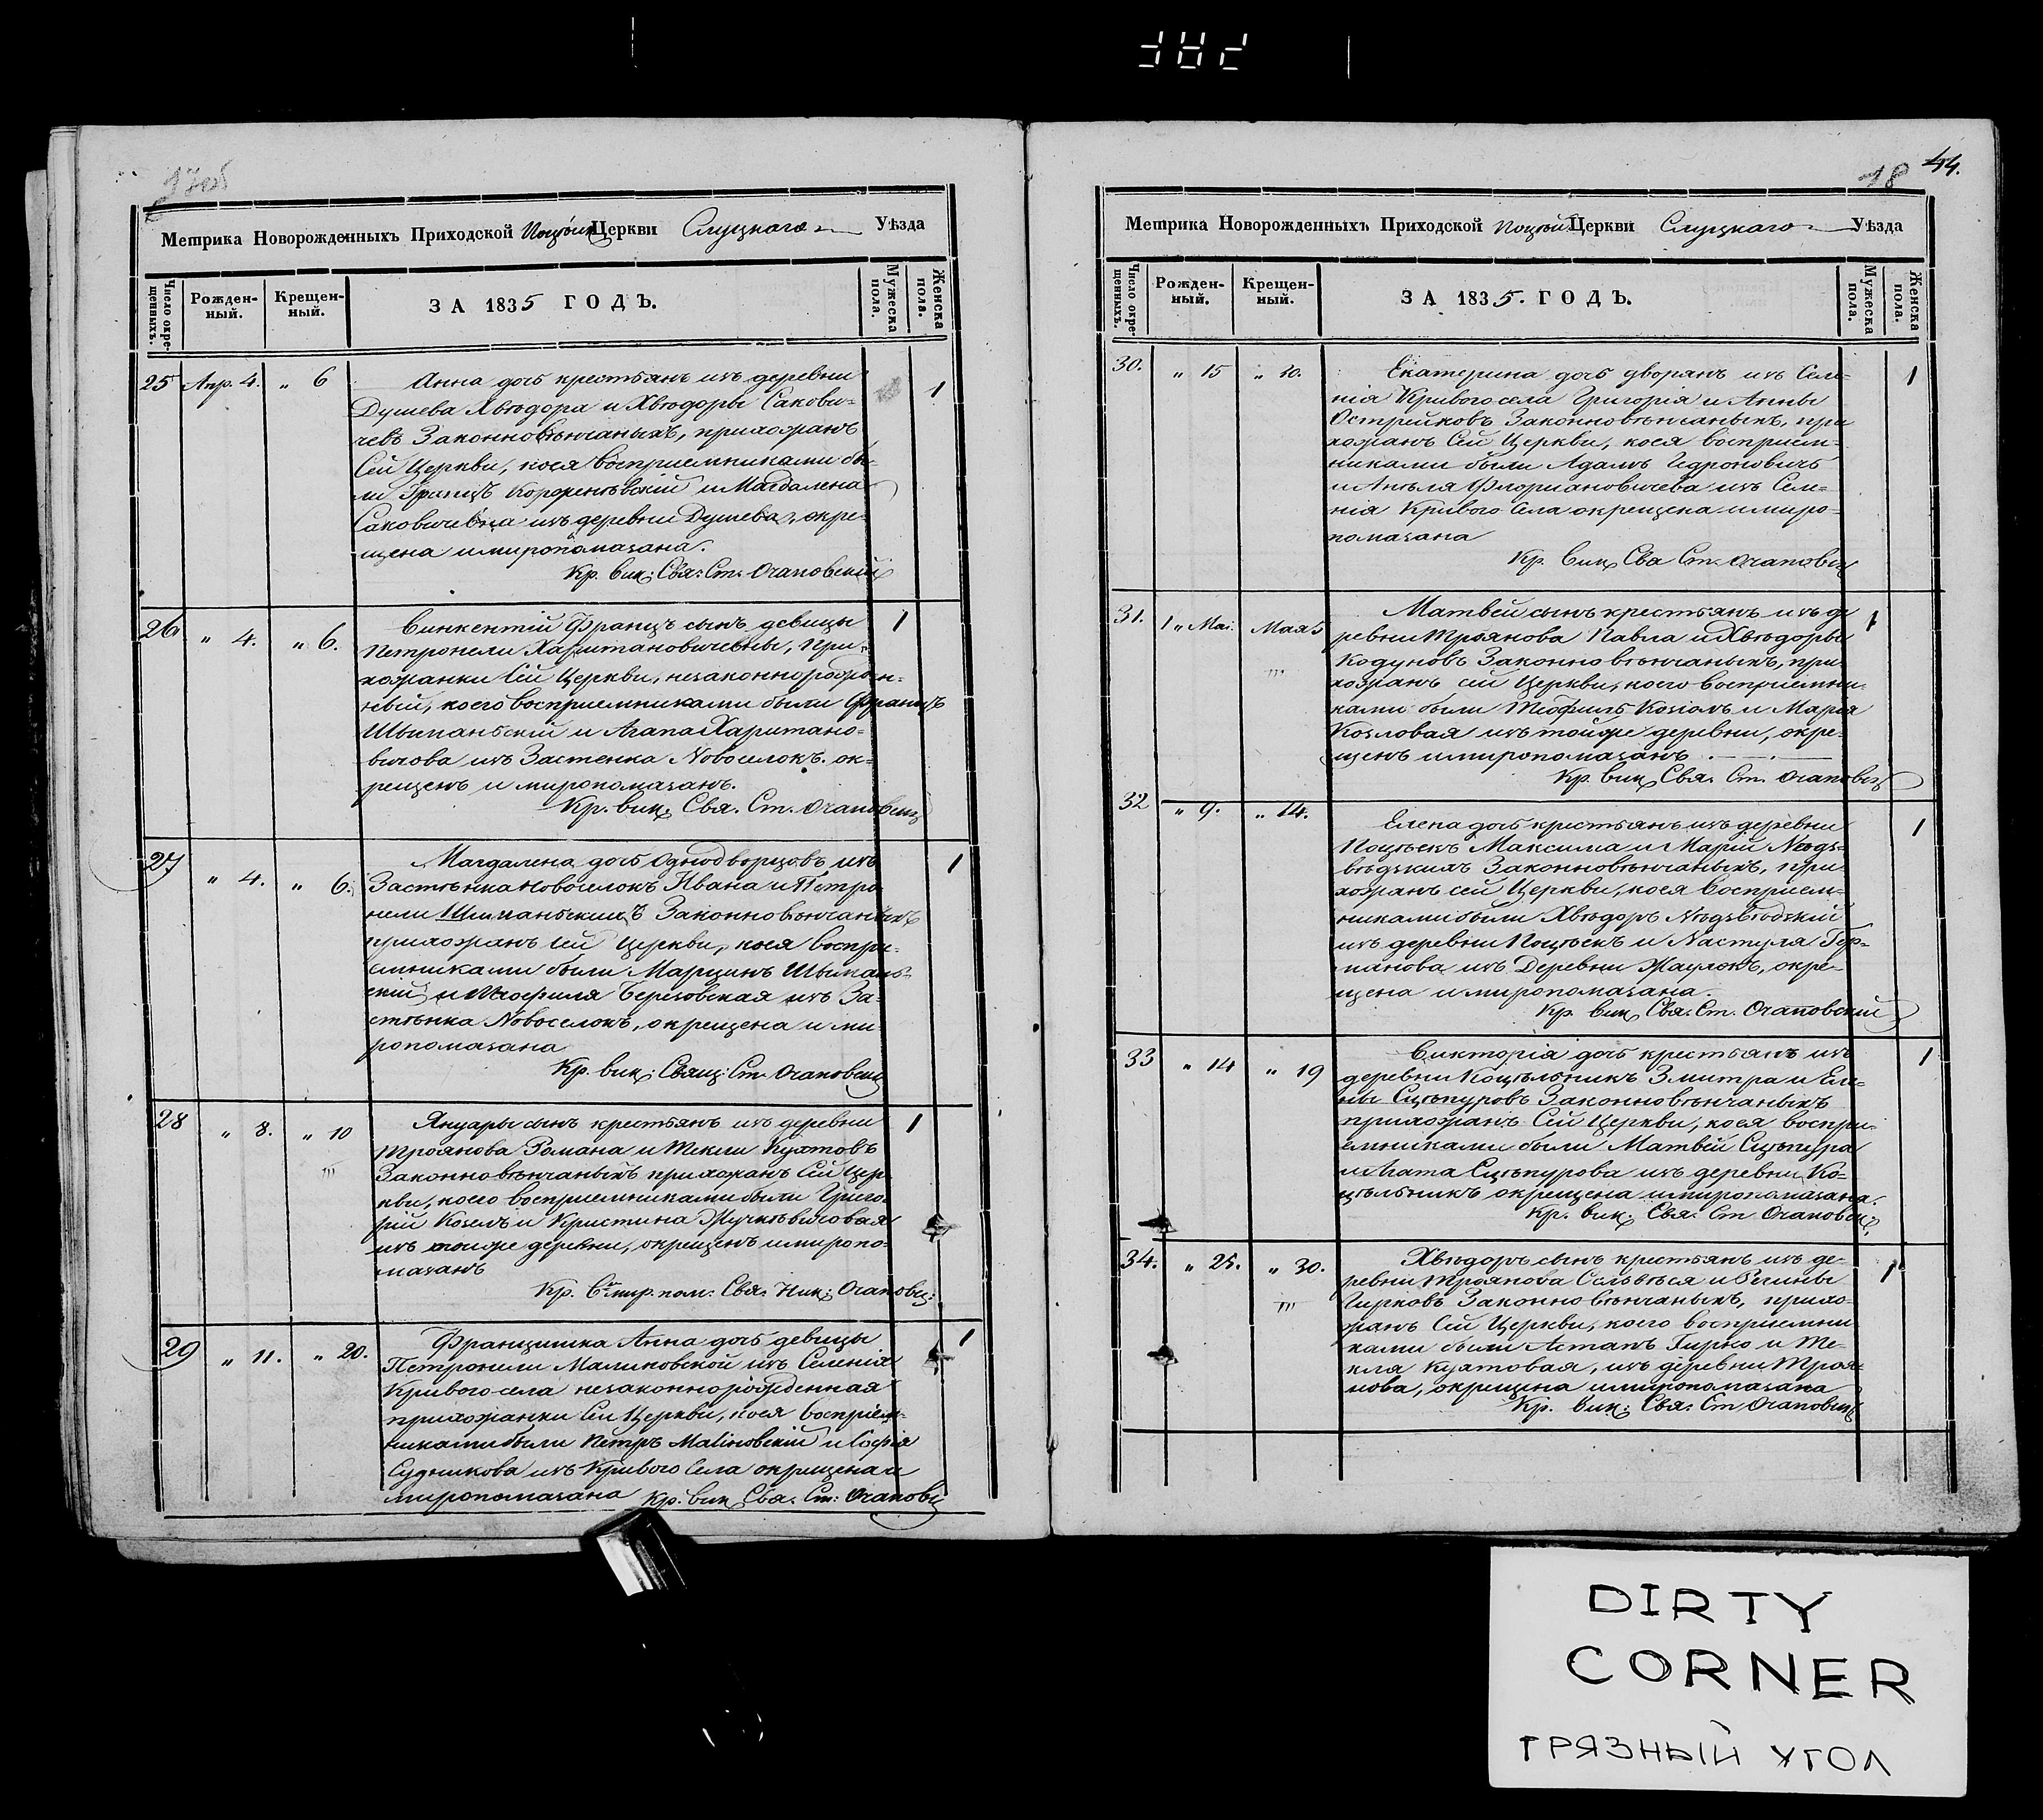 382
Метрика Новорожденныхъ Приходской Церкви Слуцкаго Уѣзда
Число окре-
щенныхъ.
Рожден-
ный.
Крещен-
ный.
ЗА 1835 ГОДЪ.
Мужеска
пола.
Женска
пола.
25 Апр. 4. „ 6 Анна дочь крестьянъ изъ деревни 1
Душева Хвѣдора и Хвѣдоры Сакови-
чевъ Законновѣнчаныхъ, прихожанъ
Сей Церкви, коея восприемниками бы-
ли и Магдалена
Саковичевна изъ деревни Душева, окре-
щена и миропомазана.
Кр. вик: Свя: Ст. Очаповскій
26 „ 4. „ 6. Винкентій Францъ сынъ девицы 1
Петронели Харитановичевны, при-
хожанки Сей Церкви, незаконнорожден-
ный, коего восприемниками были Францъ
и Агапа Харитано-
вичова изъ Застенка Новоселокъ. ок-
рещенъ и миропомазанъ.
Кр. вик. Свя. Ст. Очаповск
27 „ 4. „ 6. Магдалена дочь однодворцовъ изъ 1
Застѣнка Новоселокъ Ивана и Петро-
нели Законновѣнчаныхъ
прихожанъ сей Церкви, коея воспри-
емниками были Марцинъ
скій и Теофиля Березовская изъ За-
стѣнка Новоселокъ, окрещена и ми-
ропомазана
Кр. вик: Свящ: Ст. Очаповски
28 „ 8. „ 10 Януары сынъ крестьянъ изъ деревни 1
Троянова Романа и Текли Кухтовъ
Законновѣнчаныхъ прихожанъ Сей Цер-
кви, коего восприемниками были Григо-
рій Козелъ и Кристина
изъ тойже деревни, окрещенъ и миропо-
мазанъ
Кр. мир. пом: Свя. Ник: Очаповс:
29 „ 11. „ 20. Францишка Анна дочь девицы 1
Петронели Малиновской изъ Селенія
Кривого села незаконнорожденная
прихожанки Сей Церкви, коея восприем-
никами были Петръ Маliновскій и Софія
Судникова изъ Кривого Села окрещена и
миропомазана Кр. вик Свя. Ст: Очаповс
18 44.
Метрика Новорожденныхъ Приходской Церкви Слуцкаго Уѣзда
Число окре-
щенныхъ.
Рожден-
ный.
Крещен-
ный.
ЗА 1835. ГОДЪ.
Мужеска
пола.
Женска
пола.
30. „ 15 „ 10. Екатерина дочь дворянъ изъ Селе- 1
нія Кривого села Григорія и Анны
Острейковъ Законновѣнчаныхъ, при
хожанъ Сей Церкви, коея восприем-
никами были Адамъ
и Анѣля Флоріановичева изъ Селе-
нія Кривого Села окрещена и миро-
помазана
Кр. вик Свя Ст. Очаповск
31. 1 „ Маi. Мая 5 Матвей сынъ крестьянъ изъ де 1
ревни Троянова Павла и Хвѣдоры
Кодуновъ Законновѣнчаныхъ, при-
хожанъ сей Церкви, коего восприемни-
ками были Теофиль Козiолъ и Марія
Козловая изъ тойже деревни, окре-
щенъ и миропомазанъ
Кр. вик Свя. Ст. Очаповск
32 „ 9. „ 14. Елена дочь крестьянъ изъ деревни 1
Поцѣекъ Максима и Маріи Nѣдз-
вѣдзкихъ Законновѣнчаныхъ, при-
хожанъ сей Церкви, коея восприем-
никами были Хвѣдоръ Nѣдзвѣдзкій
изъ деревни Поцѣекъ и Nастуля Гер-
манова изъ Деревни Жаулокъ, окре-
щена и миропомазана.
Кр. вик. Свя. Ст. Очаповскій
33 „ 14 „ 19 Викторія дочь крестьянъ изъ 1
деревни Коцѣльникъ Змитра и Еле-
ны Сцѣпуровъ Законновѣнчаныхъ
прихожанъ Сей Церкви, коея воспри-
емниками были Матвей Сцѣпура
и Ѣгата Сцѣпурова изъ деревни Ко-
цѣльникъ окрещена и миропомазана.
Кр. вик. Свя: Ст Очаповск.
34. „ 25. „ 30. Хвѣдоръ сынъ крестьянъ изъ де- 1
ревни Троянова Сильвѣся и Регины
Гирковъ Законновѣнчаныхъ, прихо-
жанъ Сей Церкви, коего восприемни
ками были Астапъ Гирко и Те-
кля Кухтовая, изъ деревни Троя-
нова, окрещена и миропомазана
Кр. вик: Свя: Ст Очаповск
DIRTY
CORNER
ГРЯЗНЫЙ УГОЛ